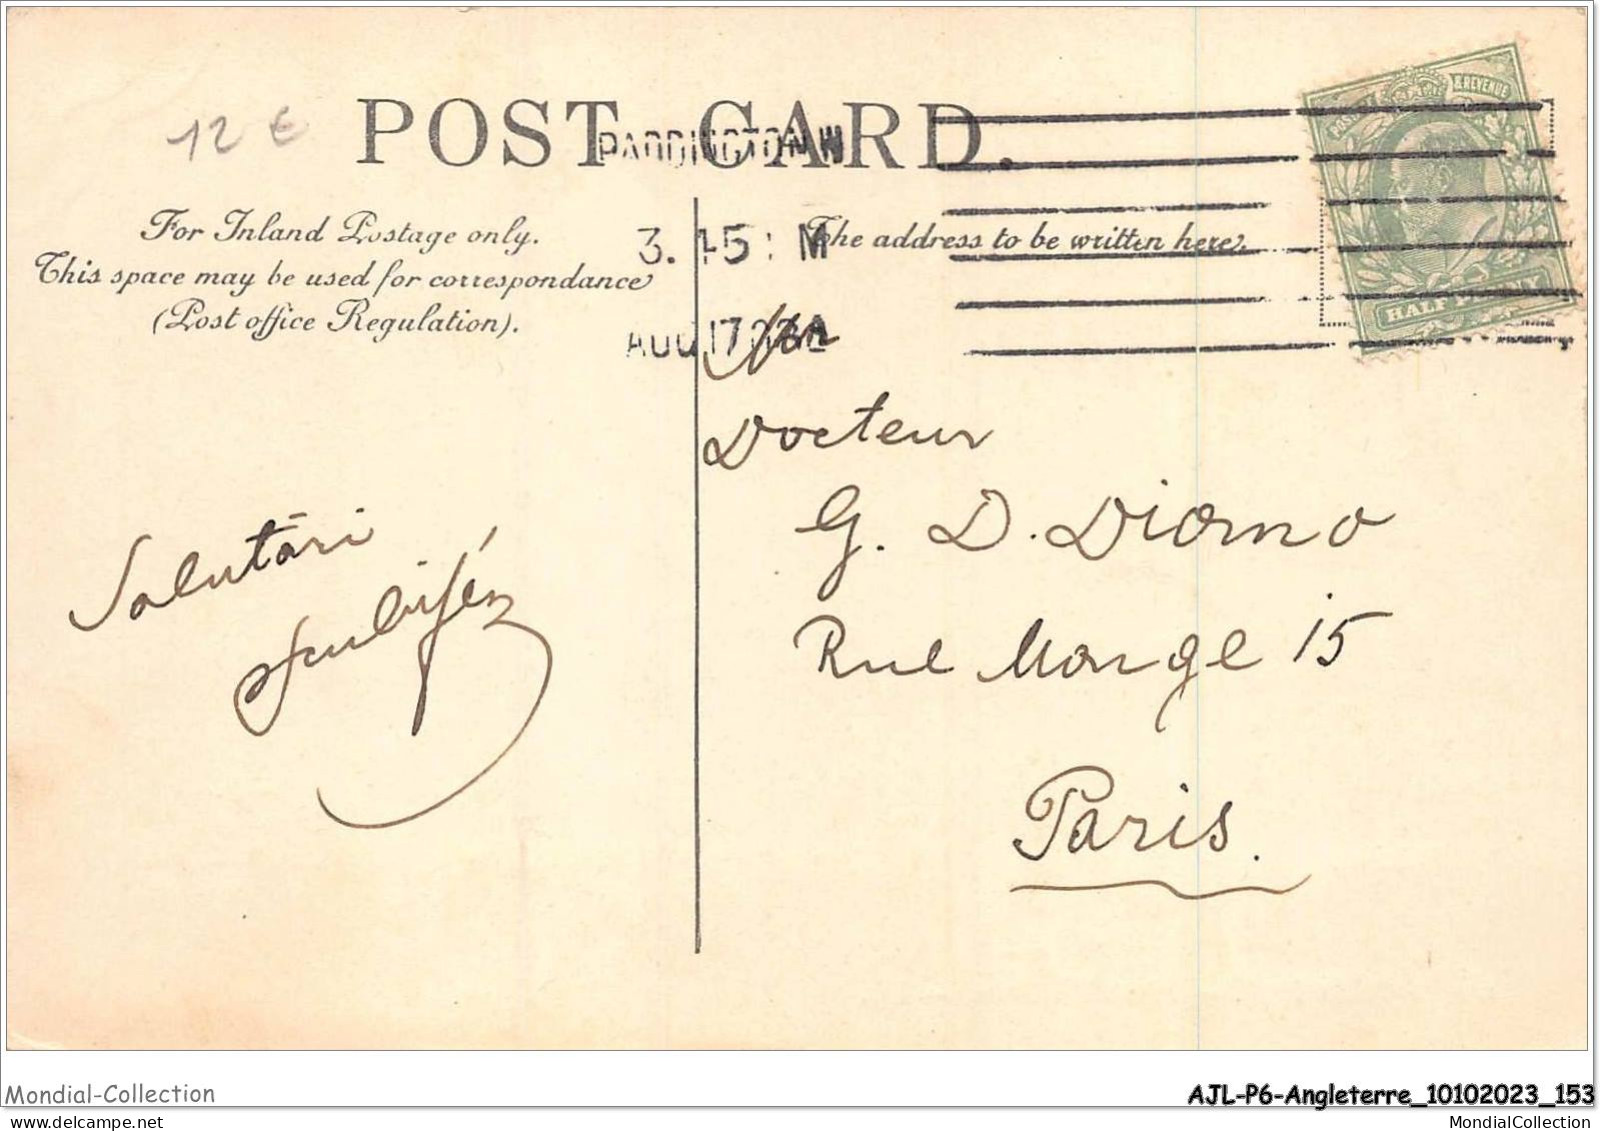 12 €
POST CARD.
PADDINGTON.W
3.45: M
AUG 17
POSTAGE & REVENUE
HALFPENNY
For Inland Postage only.
This space may be used for correspondance
(Post office Regulation).
The address to be written here.
Docteur
G. D. Diorno
Rue Monge 15
Paris.
Salutări
Mondial-Collection
AJL-P6-Angleterre_10102023_153
delcampe.net
MondialCollection